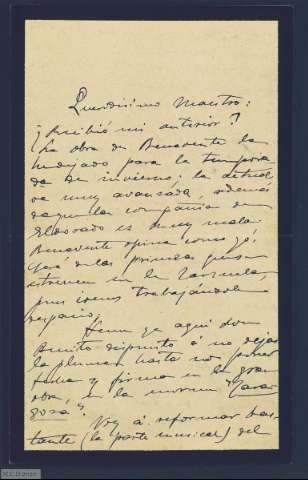 Queridisimo Maestro:
¿Recibió mi anterior?
La obra de Benavente la
he dejado para la tempora
da de invierno; la actual
va muy avanzada, además
de que la compañia de
Eldorado es muy mala
Benavente opina como yó.
Será de las primeras que se
estrenen en la Zarzuela,
pues iremos trabajándola
despacio.
Tiene ya aquí don
Benito dispuesto á no dejar
la pluma hasta no poner
fecha y firma en la gran
obra, en la enorme "Zara
goza".
Voy á reformar bas-
tante (la parte musical) del